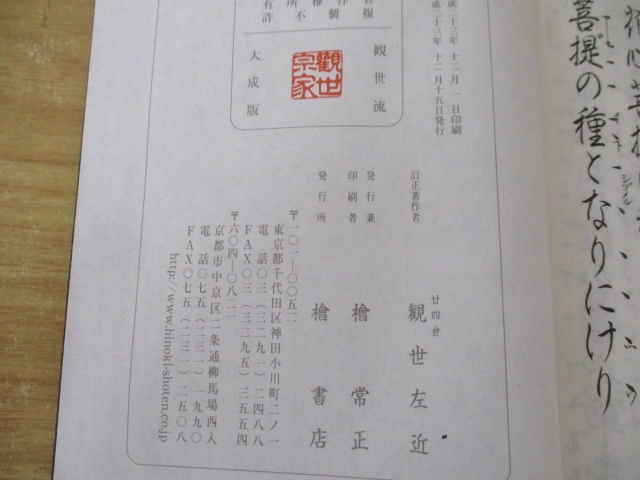 菩提の種となりにけり
シヅメル
成二十三年 十二月 一 日印刷
成二十三年 十二月十五日発行
観世流
大成版
觀世宗家
訂正著作者
廿四世
観世左近
発行兼
印刷者
檜常正
発行所
檜書店
〒一〇一―〇〇五二
東京都千代田区神田小川町二ノ一
電話〇三(三二九一)二四八八
FAX〇三(三二九五)三五五四
〒六〇四―〇八二一
京都市中京区二条通柳馬場西入
電話〇七五(二三一)一九九〇
FAX〇七五(二三一)二五〇八
http://www.hinoki-shoten.co.jp